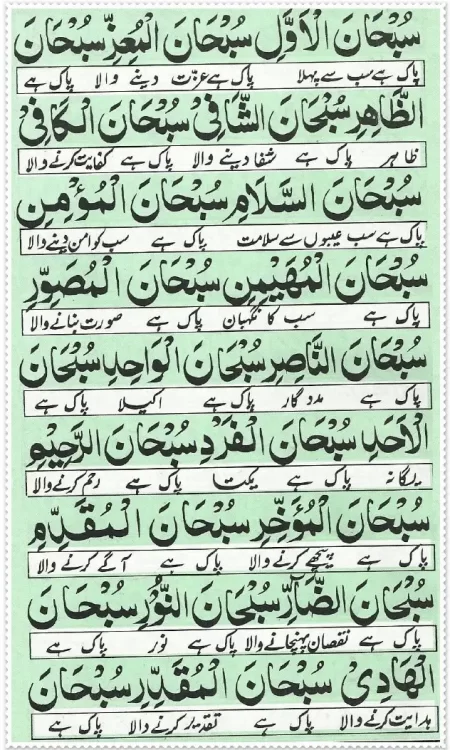 سُبْحَانَ الْاَوَّلِ سُبْحَانَ الْمُعِزِّ سُبْحَانَ
پاک ہے سب سے پہلا پاک ہے عزت دینے والا پاک ہے
الظَّاهِرِ سُبْحَانَ الشَّافِیْ سُبْحَانَ الْكَافِیْ
ظاہر پاک ہے شفا دینے والا پاک ہے کفایت کرنے والا
سُبْحَانَ السَّلَامِ سُبْحَانَ الْمُؤْمِنِ
پاک ہے سب عیبوں سے سلامت پاک ہے سب کو امن دینے والا
سُبْحَانَ الْمُهَيْمِنِ سُبْحَانَ الْمُصَوِّرِ
پاک ہے سب کا نگہبان پاک ہے صورت بنانے والا
سُبْحَانَ النَّاصِرِ سُبْحَانَ الْوَاحِدِ سُبْحَانَ
پاک ہے مددگار پاک ہے اکیلا پاک ہے
الْاَحَدِ سُبْحَانَ الْفَرْدِ سُبْحَانَ الرَّحِيْمِ
یگانہ پاک ہے یکتا پاک ہے رحم کرنے والا
سُبْحَانَ الْمُؤَخِّرِ سُبْحَانَ الْمُقَدِّمِ
پاک ہے پیچھے کرنے والا پاک ہے آگے کرنے والا
سُبْحَانَ الضَّآرِّ سُبْحَانَ النُّوْرِ سُبْحَانَ
پاک ہے نقصان پہنچانے والا پاک ہے نور پاک ہے
الْهَادِیْ سُبْحَانَ الْمُقَدِّرِ سُبْحَانَ
ہدایت کرنے والا پاک ہے تقدیر کرنے والا پاک ہے